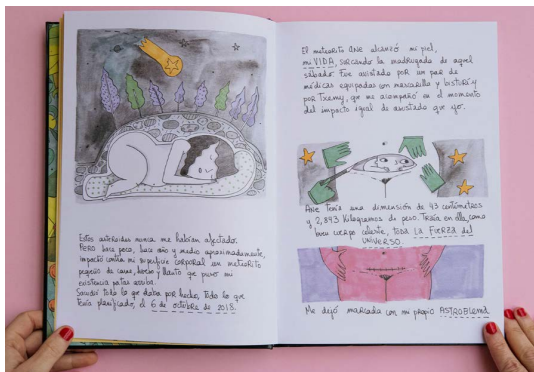 Estos asteroides nunca me habían afectado.
PERO hace poco, hace año y medio aproximadamente,
impactó contra mi superficie corporal un meteorito
pequeño de carne, hueso y llanto que puso mi
existencia patas arriba.
Sacudió todo lo que daba por hecho, todo lo que
tenía planificado, el 6 de octubre de 2018.
El meteorito ANE alcanzó mi piel,
mi VIDA, surcando la madrugada de aquel
sábado. Fue avistado por un par de
médicas equipadas con mascarilla y bisturí y
por Txemy, que me acompañó en el momento
del impacto igual de asustado que yo.
ANE tenía una dimensión de 43 centímetros
y 2,893 kilogramos de peso. Traía en ella, como
buen cuerpo celeste, TODA LA FUERZA del
UNIVERSO.
Me dejó marcada con mi propio ASTROBLEMA